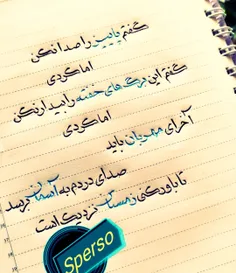 گفتم پاییز را صدا نکن
اما کردی
گفتم این برگ های خفته را بیدار نکن
اما کردی
آخر ای مهربان باید
صدای دردم به آسمان رسد
تا باور کنی زمستان نزدیک است
Sperso